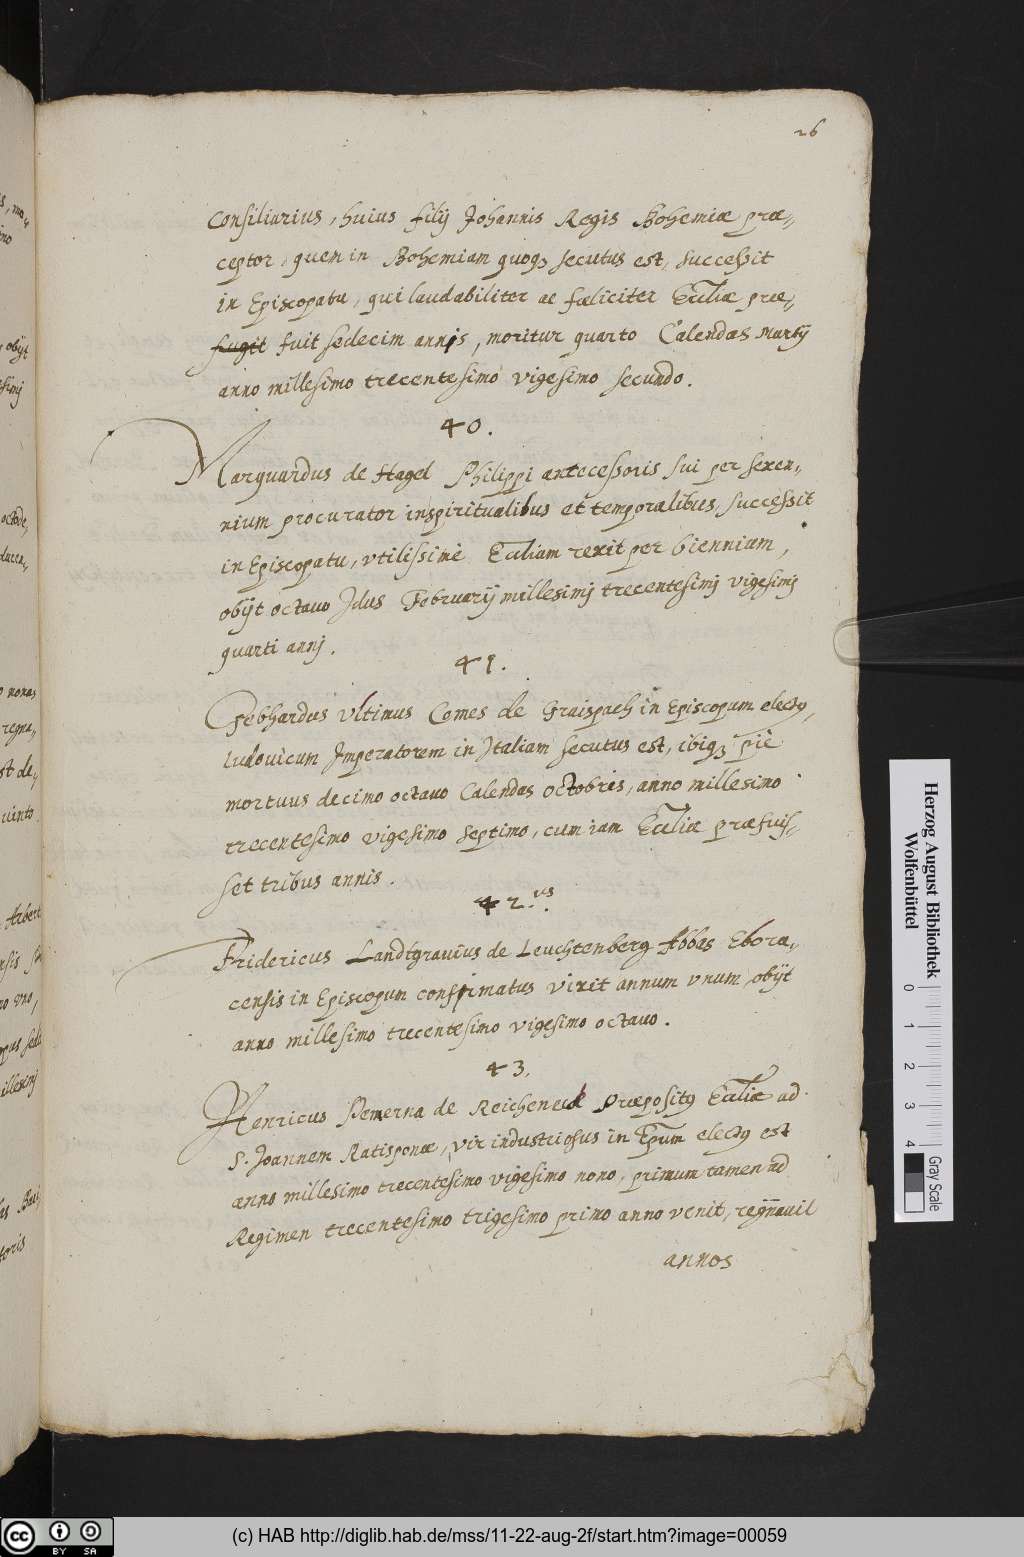 26
Consiliarius, huius filij Johannis Regis Bohemiæ præ-
ceptor, quem in Bohemiam quoqꝫ secutus est, successit
in Episcopatu, qui laudabiliter ac fœliciter Eccliæ præ-
fugit fuit sedecim annis, moritur quarto Calendas Martij
anno millesimo trecentesimo vigesimo secundo.
40.
Marquardus de Hagel Philippi antecessoris sui per sexen-
nium procurator in spiritualibus et temporalibus, successit
in Episcopatu, vtilissimè Eccliam rexit per biennium,
obijt octauo Jdus Februarij millesimj trecentesimj vigesimj
quarti annj.
41.
Gebhardus vltimus Comes de Graispach in Episcopum electꝰ,
Ludouicum Jmperatorem in Jtaliam secutus est, ibiqꝫ piè
mortuus decimo octauo Calendas octobris, anno millesimo
trecentesimo vigesimo septimo, cum iam Eccliæ præfuis-
set tribus annis.
42.us
Fridericus Landtgrauius de Leuchtenberg Abbas Ebora-
censis in Episcopum confirmatus vixit annum vnum, obijt
anno millesimo trecentesimo vigesimo octauo.
43.
Henricus Pemerna de Reicheneck Præpositꝰ Eccliæ ad
S. Joannem Ratisponæ, vir industriosus in Epum electꝰ est
anno millesimo trecentesimo vigesimo nono, primum tamen ad
Regimen trecentesimo trigesimo primo anno venit, regnauit
annos
Herzog August Bibliothek
Wolfenbüttel
0 1 2 3 4
Gray Scale
cc BY SA
(c) HAB http://diglib.hab.de/mss/11-22-aug-2f/start.htm?image=00059